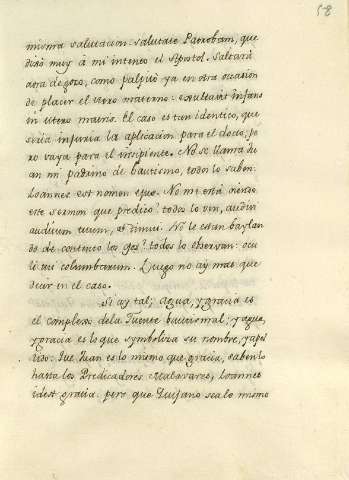 58
misma salutacion: salutate Patrobam, que
dixo muy á mi intento el Apostol. Saltará
aora de gozo, como palpitó ya en otra occasion
de placer el utero materno: exultavit infans
in utero matris. El caso es tan identico, que
sería injuria la aplicacion para el docto; pe
ro vaya para el insipiente. No se llama Ju
an mi padrino de bautismo, todo lo saben:
Ioannes est nomen ejus. No mi está oiendo
este sermon que predico? todos lo ven, audivi
auditum tuum, et timui. No le estan baylan
do de contento los ojos? todos lo observan: ocu
li tui columbarum. Luego no ay mas que
decir en el caso.
Si ay tal; Agua, y gracia es
el complexo de la Fuente baptismal; y agua,
y gracia es lo que symboliza su nombre, y apel
lido: Que Juan es lo mismo que gracia, saben lo
hasta los Predicadores Malavares, Ioannes
idest gracia: pero que Quijano sea lo mismo